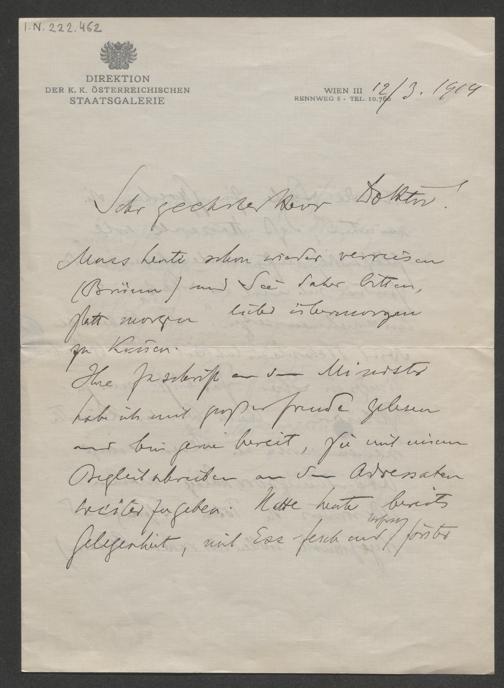 I.N. 222.462
DIREKTION
DER K. K. ÖSTERREICHISCHEN
STAATSGALERIE
WIEN III 12/3. 1919
RENNWEG 5 - TEL. 10.766
Sehr geehrter Herr Doktor!
Muss heute schon wieder verreisen
(Brünn) und Sie daher bitten,
statt morgen lieber übermorgen
zu kommen.
Ihre Zuschrift an den Minister
habe ich mit großer Freude gelesen
und bin gerne bereit, sie mit einem
Begleitschreiben an den Adressaten
weiterzugeben. Hatte heute bereits
Gelegenheit, mit